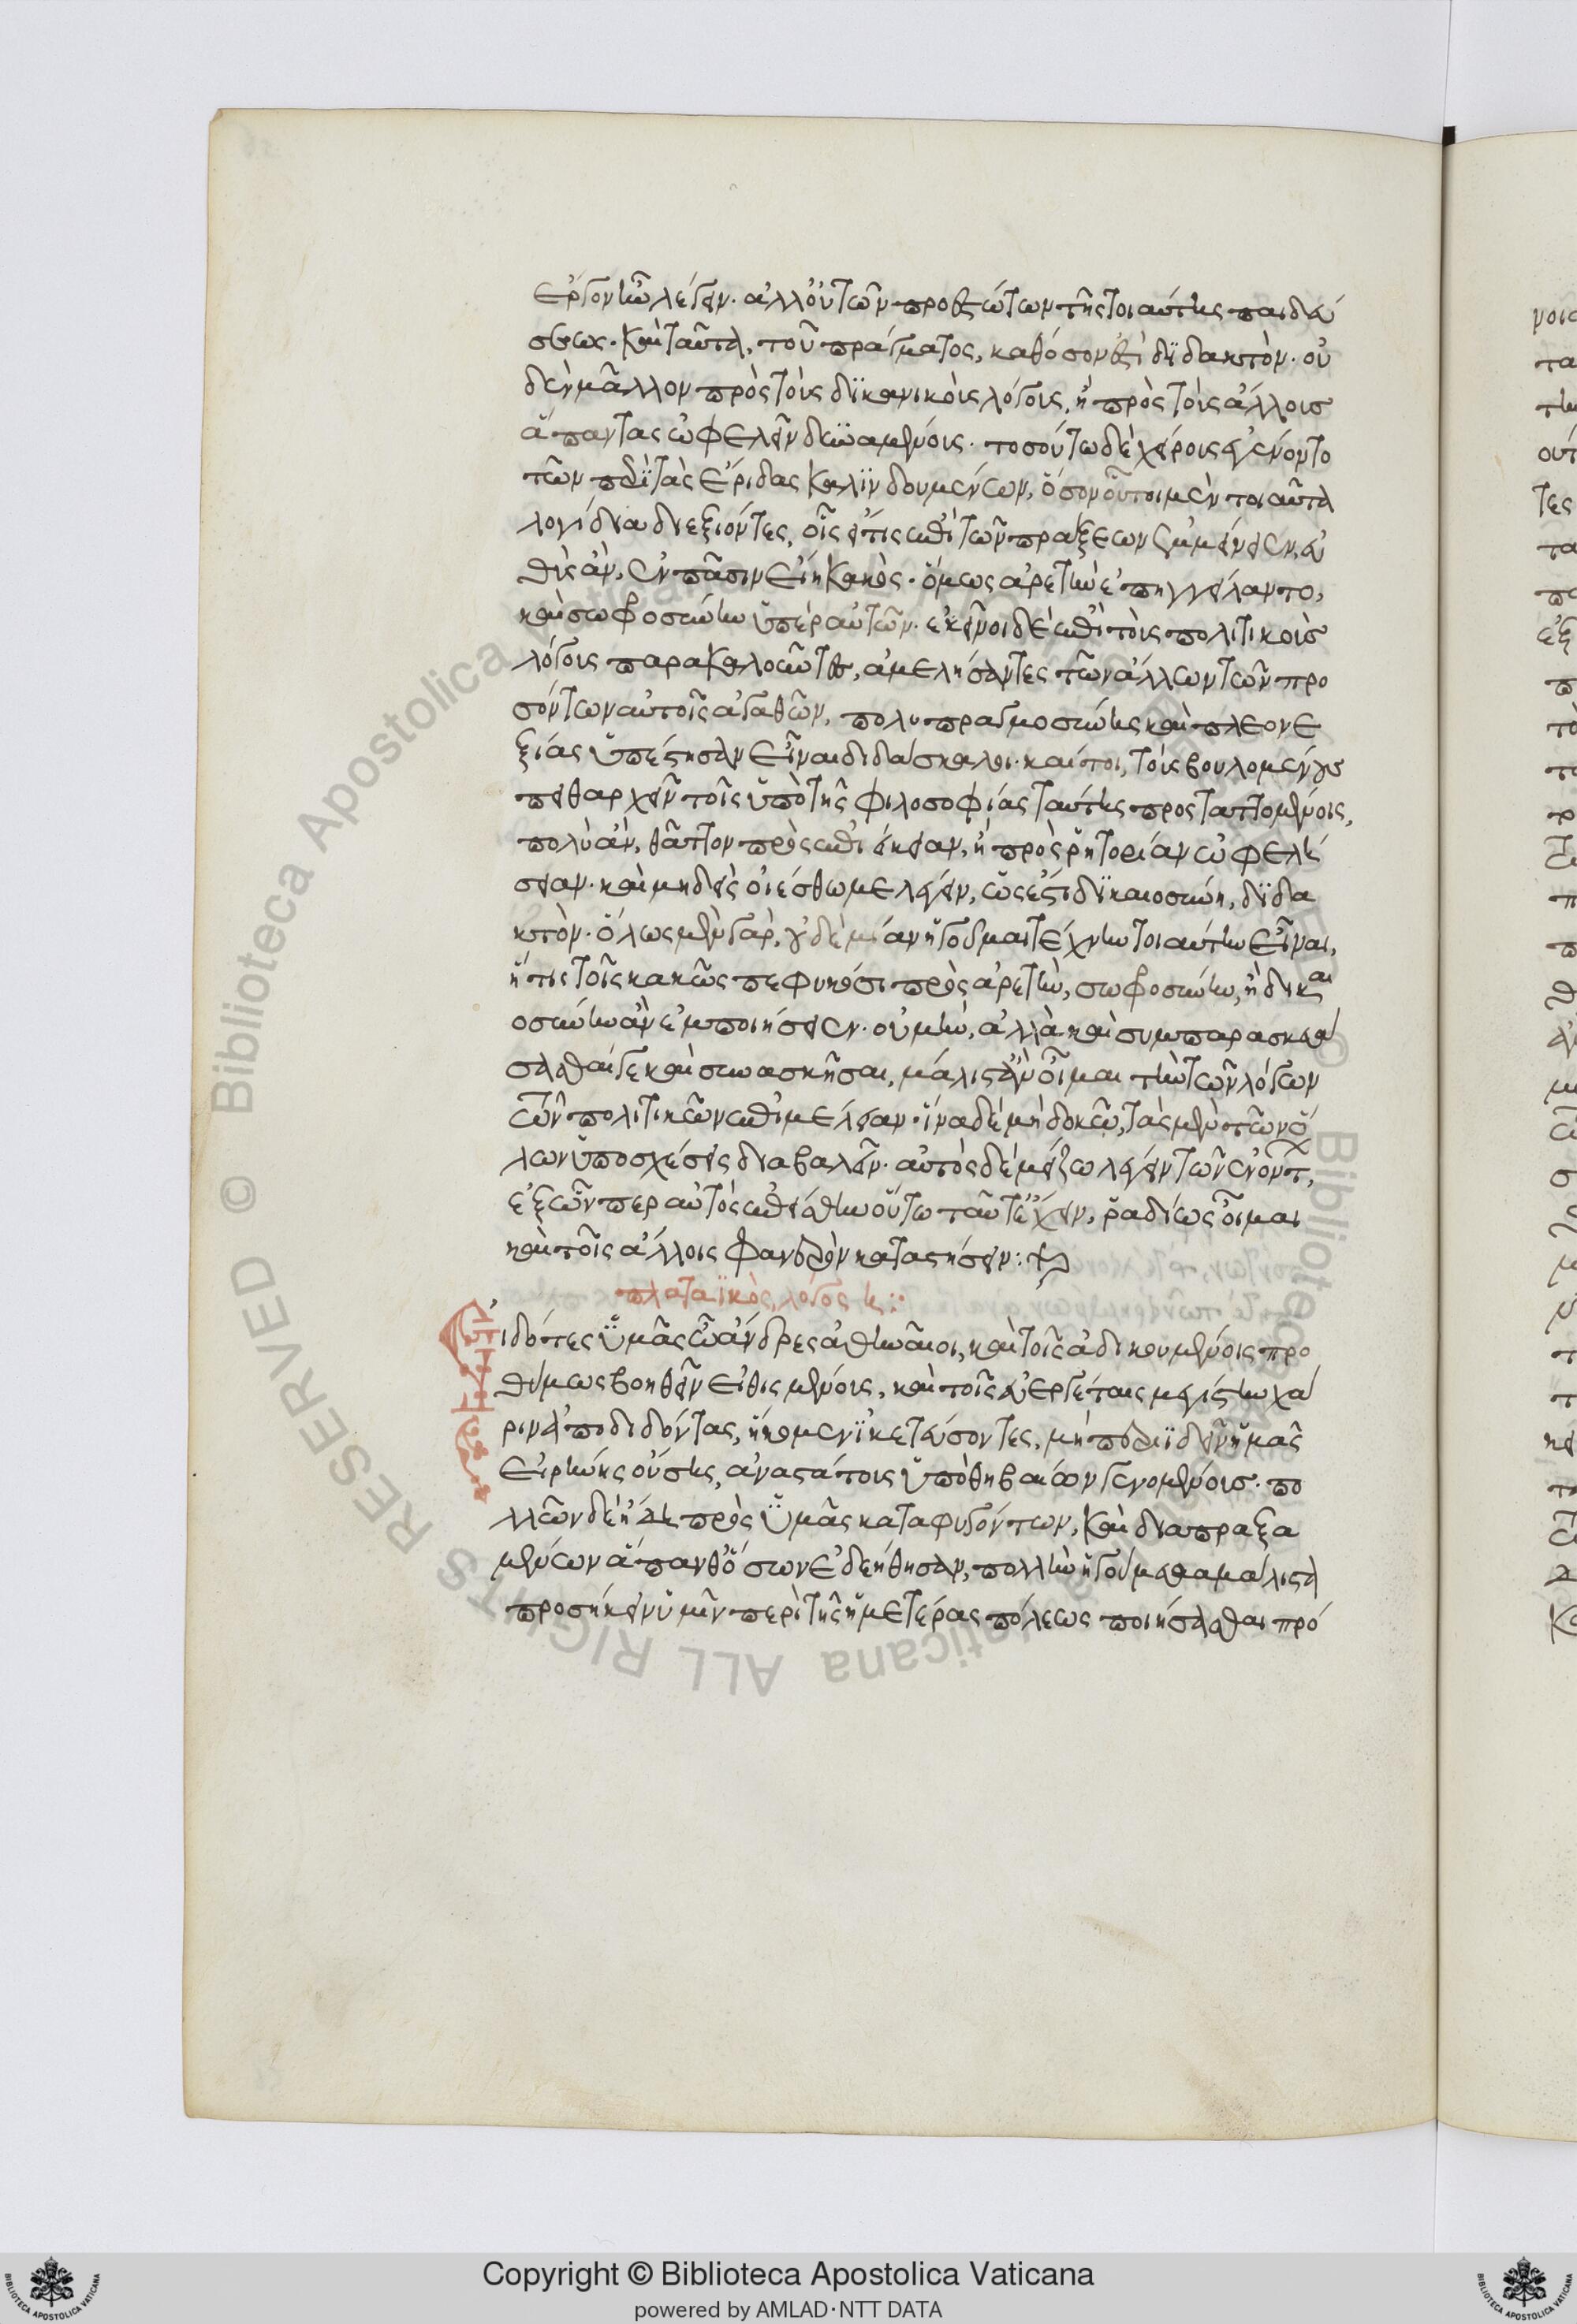 ἔργον ἦν λέγειν. ἀλλ' οὐ τῶν προεστώτων τῆς τοιαύτης παιδεύ
σεως. καὶ ταῦτα, τοῦ πράγματος, καθόσον ἐστὶ διδακτὸν. οὐ
δὲν μᾶλλον πρὸς τοὺς δικανικοὺς λόγους, ἢ πρὸς τοὺς ἄλλους
ἅπαντας ὠφελεῖν δυναμένοις. τοσούτω δὲ χείρους ἐγένοντο
τῶν περὶ τὰς ἔριδας καλινδουμένων, ὅσον οὗτοι μὲν τοιαῦτα
λογίδια διεξιόντες, οἷς εἴ τις ἐπὶ τῶν πράξεων ἐμμείνειεν, εὐ
θὺς ἂν, ἐν πᾶσιν εἴη κακοῖς. ὅμως ἀρετὴν ἐπηγγείλαντο,
καὶ σωφροσύνην ὑπὲρ αὐτῶν. ἐκεῖνοι δὲ ἐπὶ τοὺς πολιτικοὺς
λόγους παρακαλοῦντες, ἀμελήσαντες τῶν ἄλλων τῶν προ
σόντων αὐτοῖς ἀγαθῶν, πολυπραγμοσύνης καὶ πλεονε
ξίας ὑπέστησαν εἶναι διδάσκαλοι. καίτοι, τοὺς βουλομένους
πειθαρχεῖν τοῖς ὑπὸ τῆς φιλοσοφίας ταύτης προσταττομένοις,
πολὺ ἂν, θᾶττον πρὸς ἐπιείκειαν, ἢ πρὸς ῥητορίαν ὠφελή
σειαν. καὶ μηδεὶς οἰέσθω με λέγειν, ὡς ἔστι δικαιοσύνη, διδα
κτὸν. ὅλως μὲν γὰρ, οὐδεμίαν ἡγοῦμαι τέχνην τοιαύτην εἶναι,
ἥτις τοῖς κακῶς πεφυκόσι πρὸς ἀρετὴν, σωφροσύνην, ἢ δικαι
οσύνην ἂν ἐμποιήσειεν. οὐ μὴν, ἀλλὰ καὶ συμπαρασκευά
σασθαί γε καὶ συνασκῆσαι, μάλιστ' ἂν οἶμαι τὴν τῶν λόγων
τῶν πολιτικῶν ἐπιμέλειαν. ἵνα δὲ μὴ δοκῶ, τὰς μὲν τῶν ἄλ
λων ὑποσχέσεις διαβαλεῖν. αὐτὸς δὲ μείζω λέγειν τῶν ἐνόντων,
ἐξ ὧνπερ αὐτὸς ἐπείσθην οὕτω ταῦτ' ἔχειν, ῥαδίως οἶμαι
καὶ τοῖς ἄλλοις φανερὸν καταστήσειν:
πλαταϊκὸς, λόγος
ιδότες ὑμᾶς ὦ ἄνδρες ἀθηναῖοι, καὶ τοῖς ἀδικουμένοις προ
θύμως βοηθεῖν εἰθισμένους, καὶ τοῖς εὐεργέταις μεγίστην χά
ριν ἀποδιδόντας, ἥκομεν ἱκετεύσοντες, μὴ περιιδεῖν ἡμᾶς
εἰρήνης οὔσης, ἀναστάτους ὑπὸ θηβαίων γενομένους. πο
λλῶν δὲ ἤδη πρὸς ὑμᾶς καταφυγόντων, καὶ διαπραξα
μένων ἅπανθ' ὅσων ἐδεήθησαν, πολλὴν ἡγούμεθα μάλιστα
προσήκειν ὑμῖν περὶ τῆς ἡμετέρας πόλεως ποιήσασθαι πρό